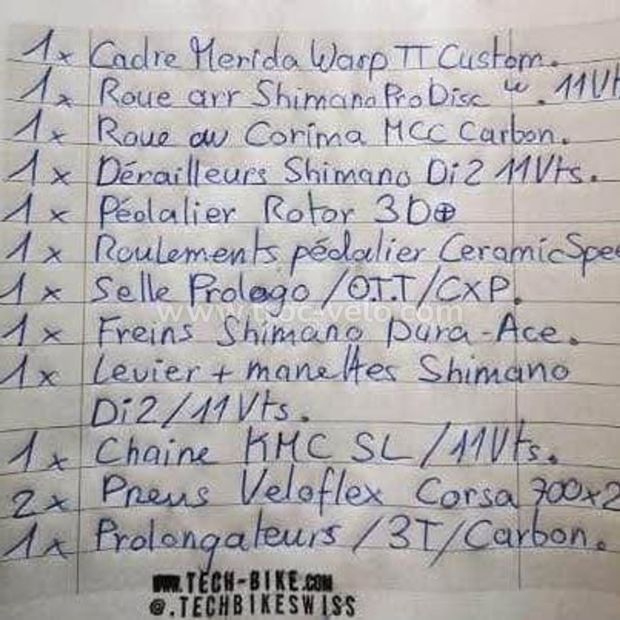 1x Cadre Merida Warp TT Custom.
1x Roue arr Shimano Pro Disc 11Vt
1x Roue av Corima MCC Carbon.
1x Dérailleurs Shimano Di2 11Vts.
1x Pédalier Rotor 3D⊕
1x Roulements pédalier CeramicSpee
1x Selle Prologo /O.T.T/CXP.
www.troc-velo.com
1x Freins Shimano Dura-Ace.
1x Levier + manettes Shimano
Di2/11Vts.
1x Chaine KMC SL /11Vts.
2x Pneus Veloflex Corsa 700x2
1x Prolongateurs /3T/Carbon.
www.TECH-BIKE.COM
@.TECHBIKESWISS